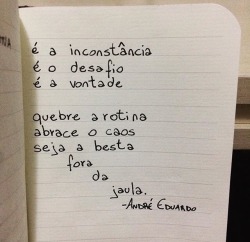 é a inconstância
é o desafio
é a vontade
quebre a rotina
abrace o caos
seja a besta
fora
da
jaula.
-ANDRÉ EDUARDO